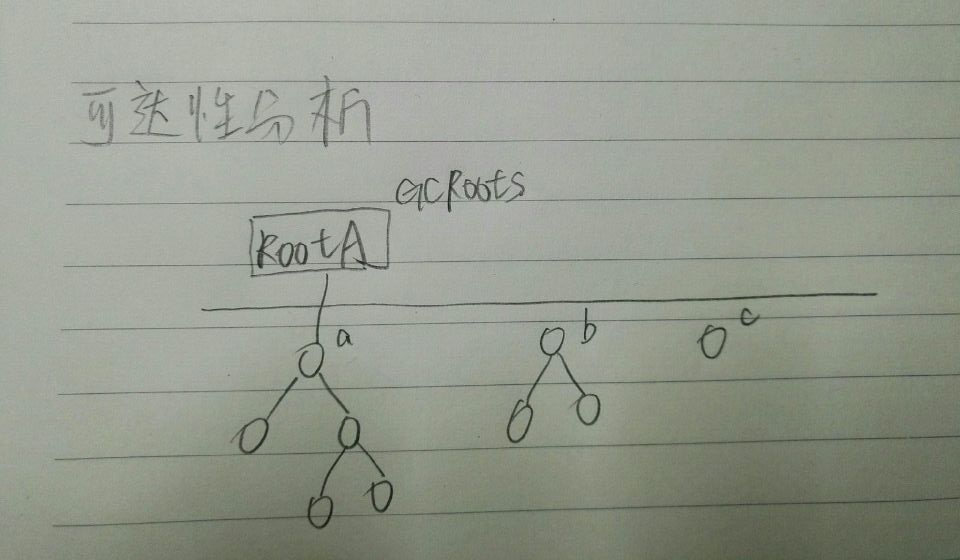 可达性分析
GCRoots
RootA
a
b
c